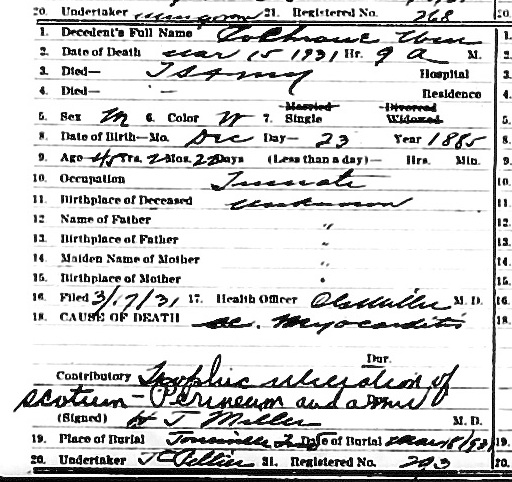 20. Undertaker 21. Registered No. 268
1. Decedent's Full Name Cochrane Wm
2. Date of Death Mar 15 1931 Hr. 9 A M.
3. Died— Hospital
4. Died— - Residence
Married Divorced
5. Sex M 6. Color W 7. Single Widowed
8. Date of Birth—Mo. Dec Day— 23 Year 1885
9. Age 45 Yrs. 2 Mos. 22 Days (Less than a day)— Hrs. Min.
10. Occupation Inmate
11. Birthplace of Deceased unknown
12 Name of Father "
13. Birthplace of Father
14. Maiden Name of Mother "
15. Birthplace of Mother
16. Filed 3/17/31 17. Health Officer M. D.
18. CAUSE OF DEATH ac. Myocarditis
Dur.
Contributory Trophic ulceration of
scotum - Perineum and anus
(Signed) H T Miller M. D.
19. Place of Burial Date of Burial Mar 18/931
20. Undertaker 21. Registered No. 293